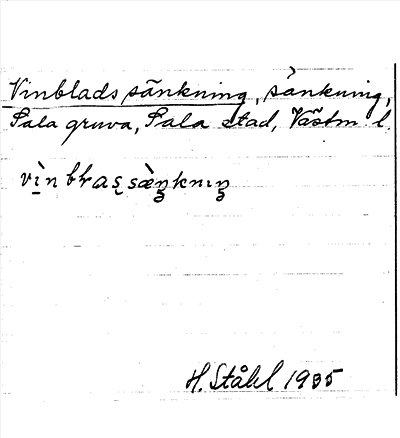 Vinblads sänkning, sänkning,
Sala gruva, Sala stad, Västm. l.
vìn bras sæ̀ŋknɪŋ
H. Ståhl 1935